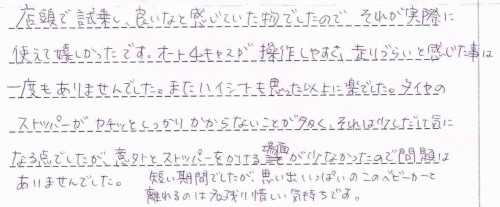 店頭で試乗し、良いなと感じていた物でしたので それが実際に
使えて嬉しかったです。オート4キャスが操作しやすく、走りづらいと感じた事は
一度もありませんでした。またハイシートも思った以上に楽でした。タイヤの
ストッパーがカチッとしっかりかからないことが多く、それは少しだけ気に
なる点でしたが、意外とストッパーをかける場面が少なかったので問題は
ありませんでした。 短い期間でしたが、思い出いっぱいのこのベビーカーと
離れるのは名残り惜しい気持ちです。